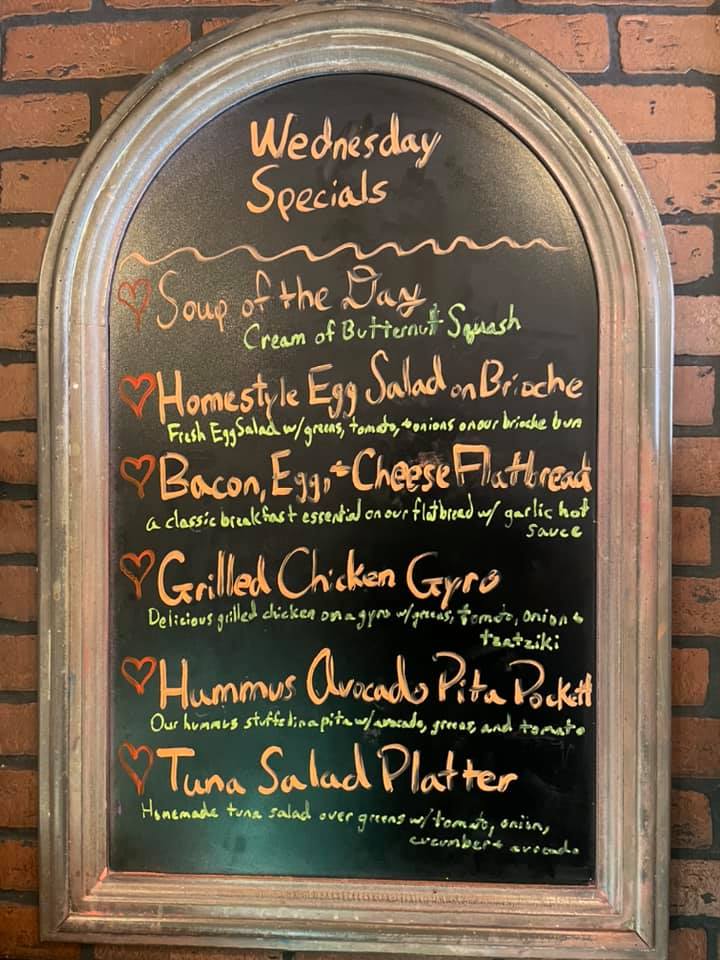 Wednesday
Specials
Soup of the Day
Cream of Butternut Squash
Homestyle Egg Salad on Brioche
Fresh Egg Salad w/ greens, tomato, + onions on our brioche bun
Bacon, Egg, + Cheese Flatbread
a classic breakfast essential on our flatbread w/ garlic hot
sauce
Grilled Chicken Gyro
Delicious grilled chicken on a gyro w/ greens, tomato, onion +
tzatziki
Hummus Avocado Pita Pockett
Our hummus stuffed in a pita w/ avocado, greens, and tomato
Tuna Salad Platter
Homemade tuna salad over greens w/ tomato, onion,
cucumber + avocado